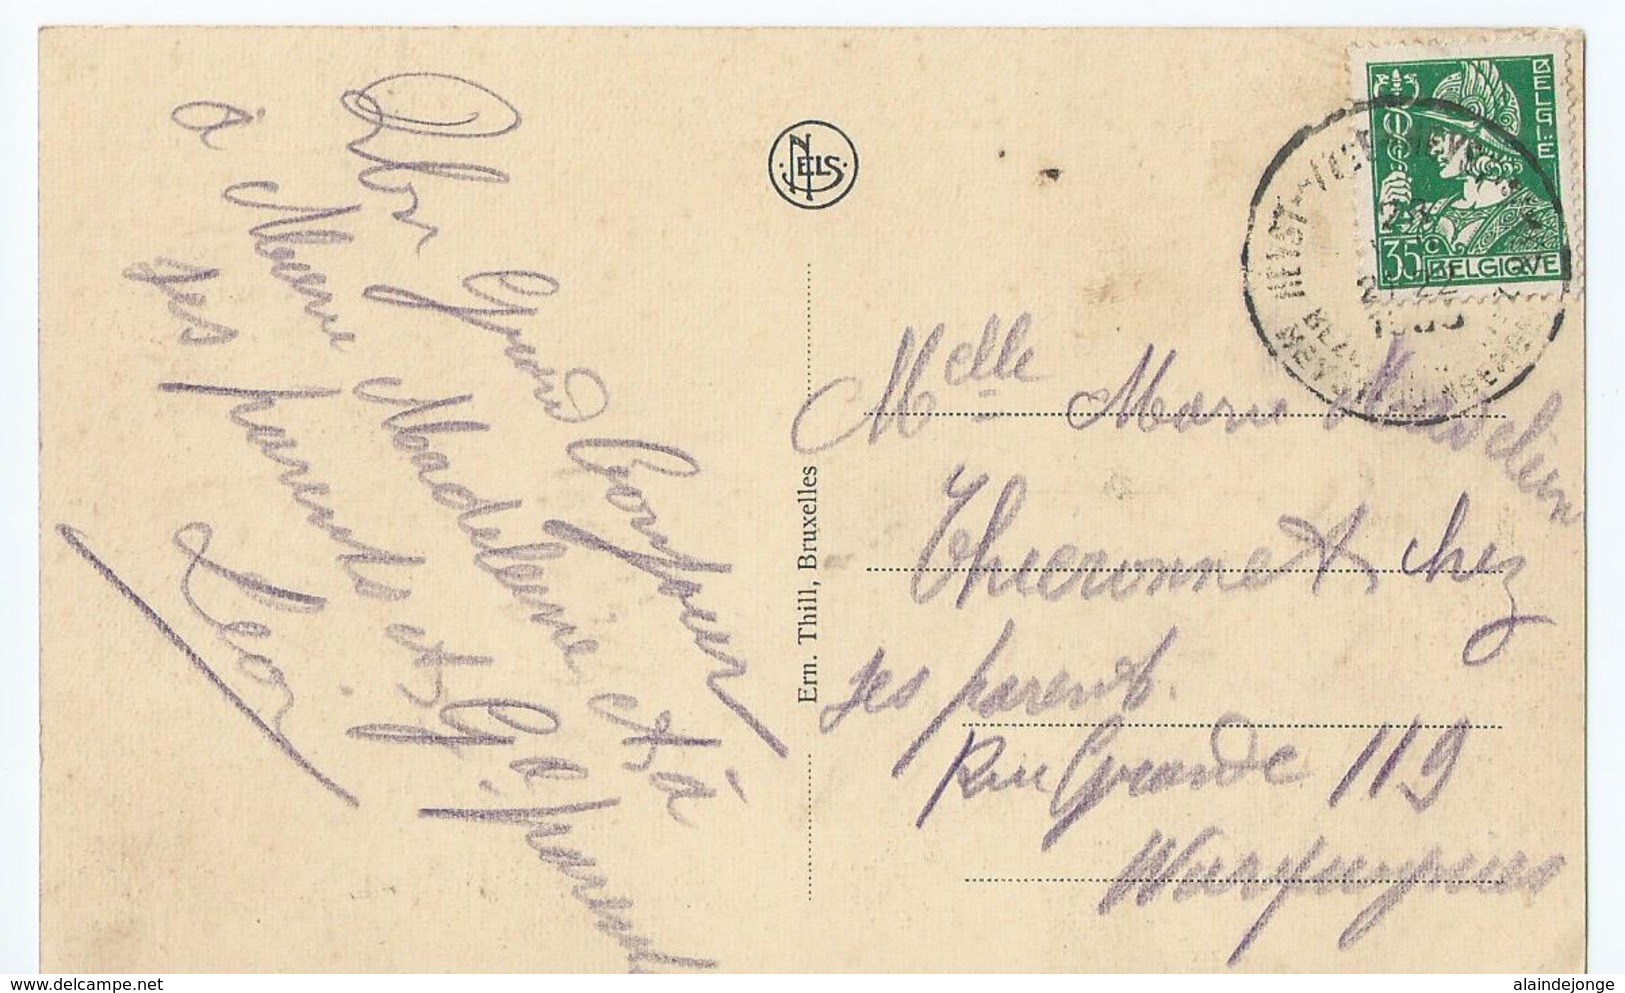 Un Grand Bonjour
à Marie Madeleine et à
ses parents et G. parents
Léon
NELS
Ern. Thill, Bruxelles
BELGIE
35c
BELGIQUE
HEYST
Melle Marie Madeleine
Thieronnet chez
ses parents
Rue Grande 119
Warquignies
delcampe.net
alaindejonge